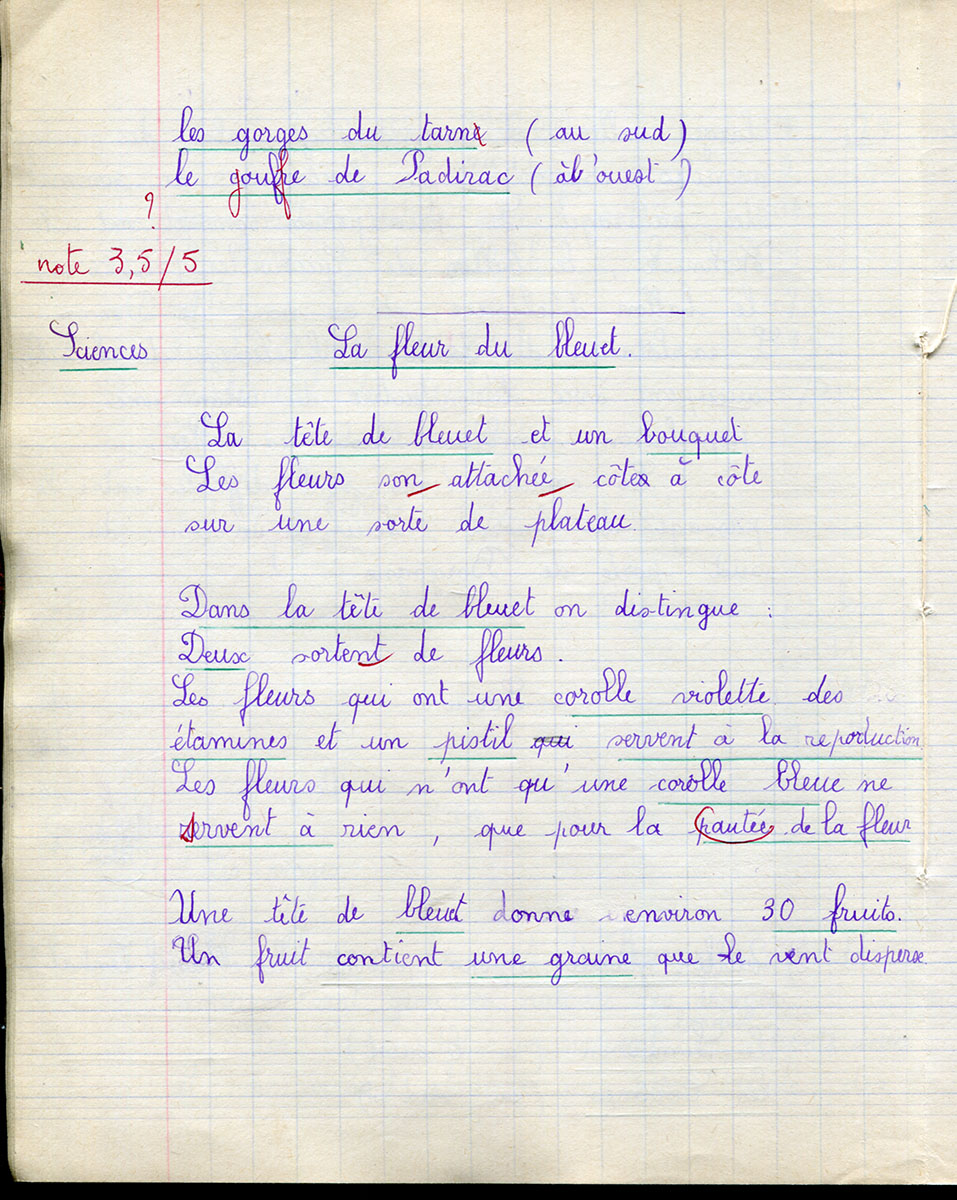 les gorges du tarn (au sud)
le gouffre de Padirac (à l'ouest)
?
note 3,5/5
Sciences La fleur du bleuet.
La tête de bleuet et un bouquet
Les fleurs son attachée côtes à côte
sur une sorte de plateau
Dans la tête de bleuet on distingue :
Deux sortent de fleurs.
Les fleurs qui ont une corolle violette des
étamines et un pistil qui servent à la reproduction
Les fleurs qui n'ont qu'une corolle bleue ne
servent à rien, que pour la pautée de la fleur
Une tête de bleuet donne environ 30 fruits.
Un fruit contient une graine que le vent disperse